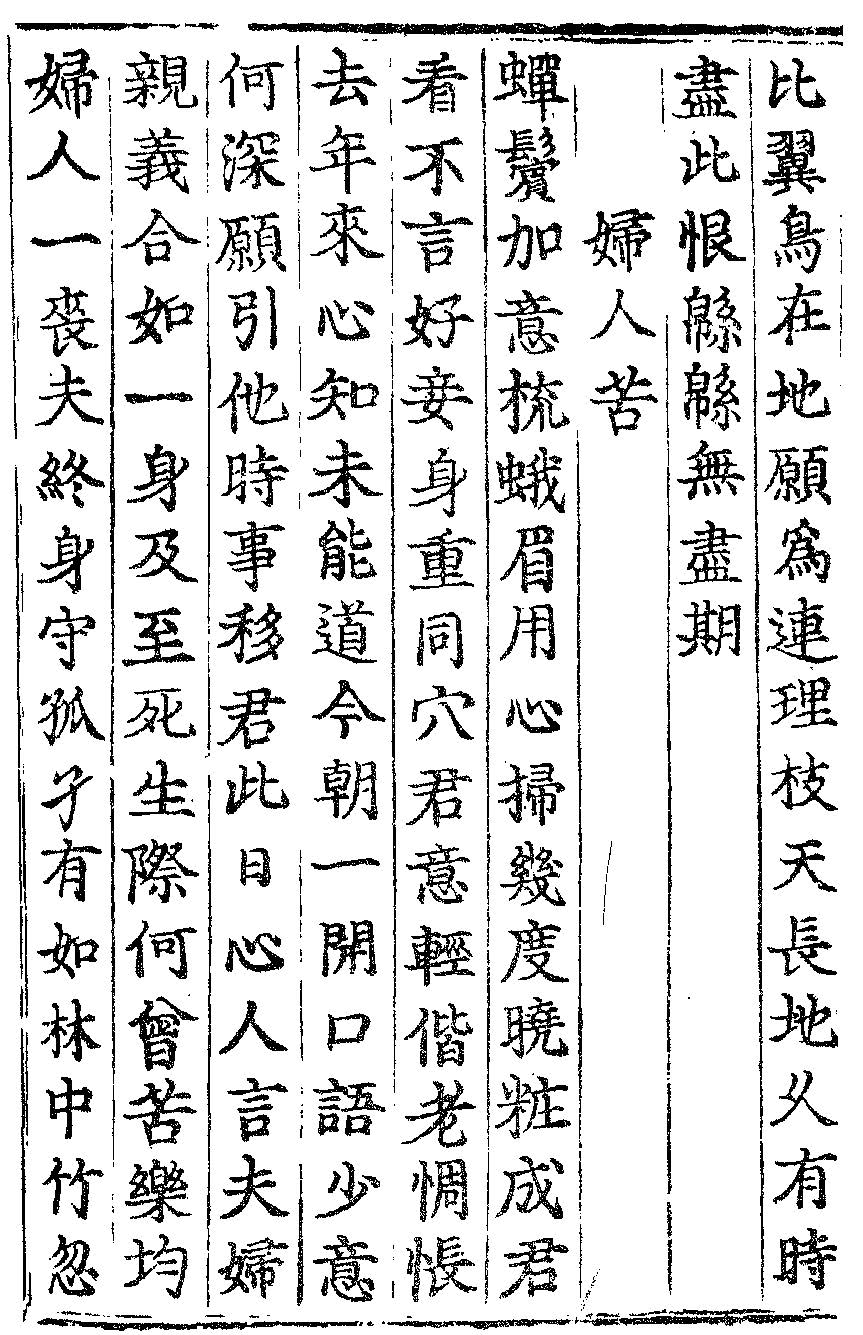 比翼鳥在地願爲連理枝天長地久有時
盡此恨緜緜無盡期
婦人苦
蟬鬢加意梳蛾眉用心掃幾度曉粧成君
看不言好妾身重同穴君意輕偕老惆悵
去年來心知未能道今朝一開口語少意
何深願引他時事移君此日心人言夫婦
親義合如一身及至死生際何曾苦樂均
婦人一喪夫終身守孤孑有如林中竹忽